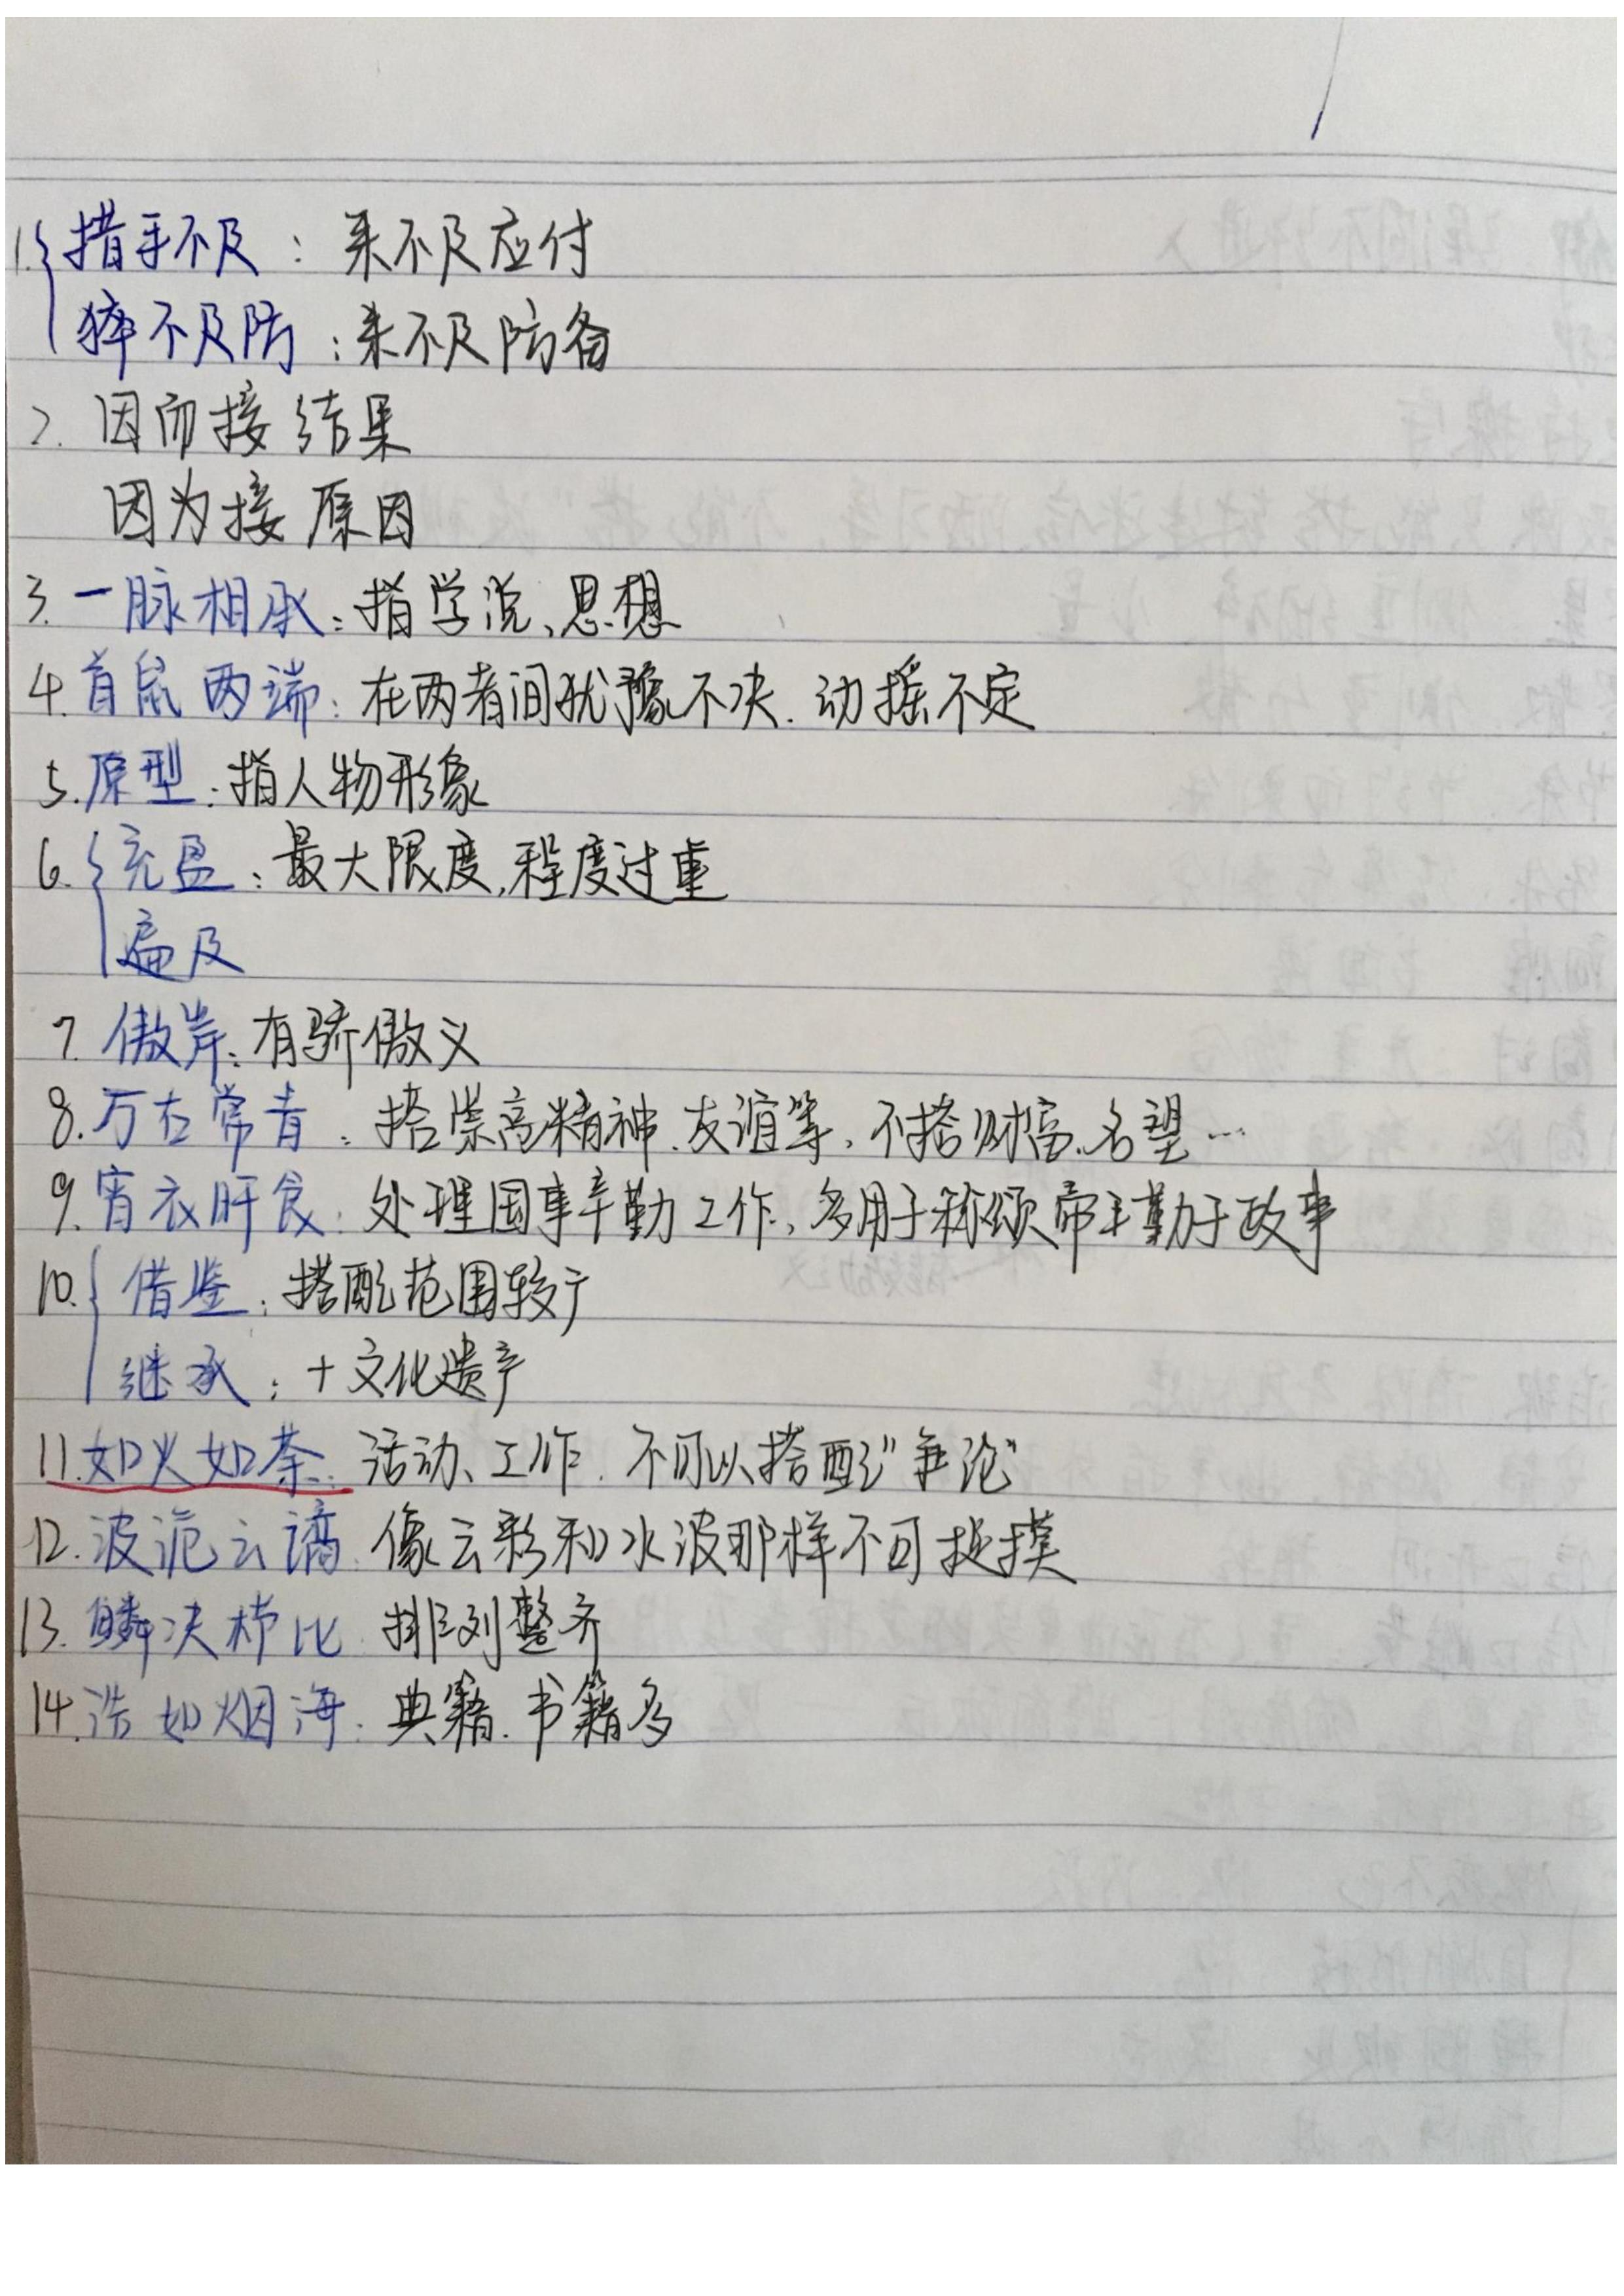 1.{措手不及：来不及应付
猝不及防：来不及防备
2. 因而接结果
因为接原因
3. 一脉相承：指学说、思想
4. 首鼠两端：在两者间犹豫不决.动摇不定
5. 原型：指人物形象
6.{充盈：最大限度,程度过重
遍及
7. 傲岸：有骄傲义
8. 万古常青：搭崇高精神.友谊等，不搭财富.名望…
9. 宵衣旰食：处理国事辛勤工作，多用于称颂帝王勤于政事
10.{借鉴：搭配范围较广
继承：+文化遗产
11. 如火如荼：活动、工作. 不可以搭配"争论"
12. 波诡云谲：像云彩和水波那样不可捉摸
13. 鳞次栉比：排列整齐
14. 浩如烟海：典籍.书籍多